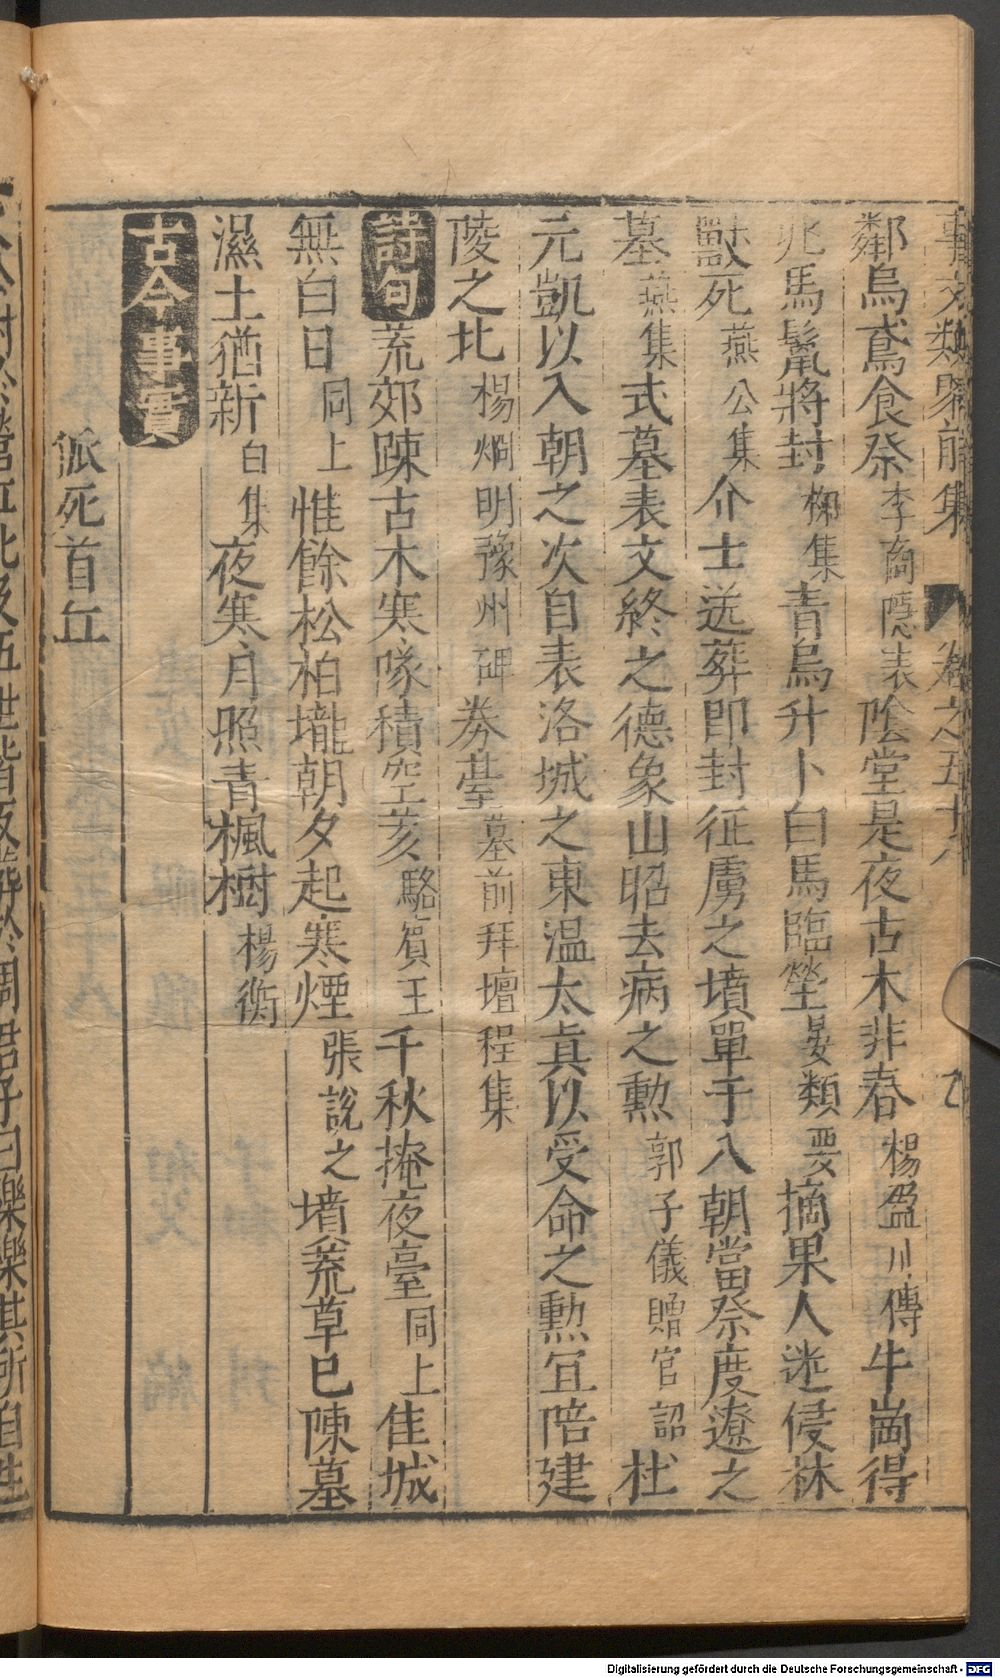 事文類聚前集 卷之五十八 七
鄰烏鳶食祭李商隱表陰堂是夜古木非春楊盈川傳牛崗得
兆馬鬣將封柳集青烏升卜白馬臨塋晏類要摘果人迷侵林
獸死燕公集介士送葬即封征虜之墳單于入朝當祭度遼之
墓燕集式墓表文終之德象山昭去病之勲郭子儀贈官詔杜
元凱以入朝之次自表洛城之東温太真以受命之勲宜陪建
陵之北楊烱明豫州碑券臺墓前拜壇程集
詩句荒郊踈古木寒隊積空亥駱賓王千秋掩夜臺同上佳城
無白日同上惟餘松柏壠朝夕起寒煙張說之墳荒草已陳墓
濕土猶新白集夜寒月照青楓樹楊衡
古今事實
狐死首丘
太公封於營丘比及五世皆反葬於周君子曰樂樂其所自生
Digitalisierung gefördert durch die Deutsche Forschungsgemeinschaft - DFG